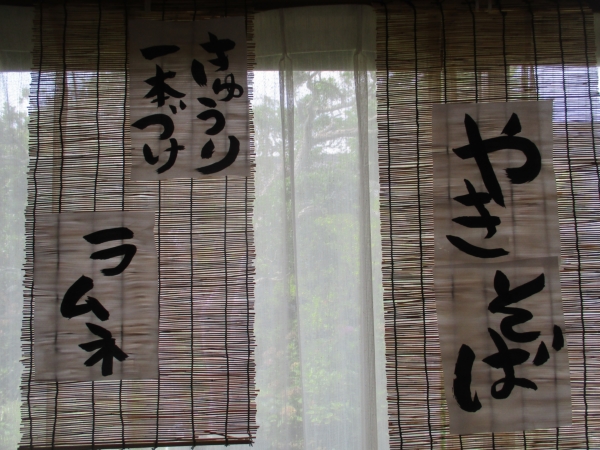 やき
そば
きゅうり
一本づけ
ラムネ